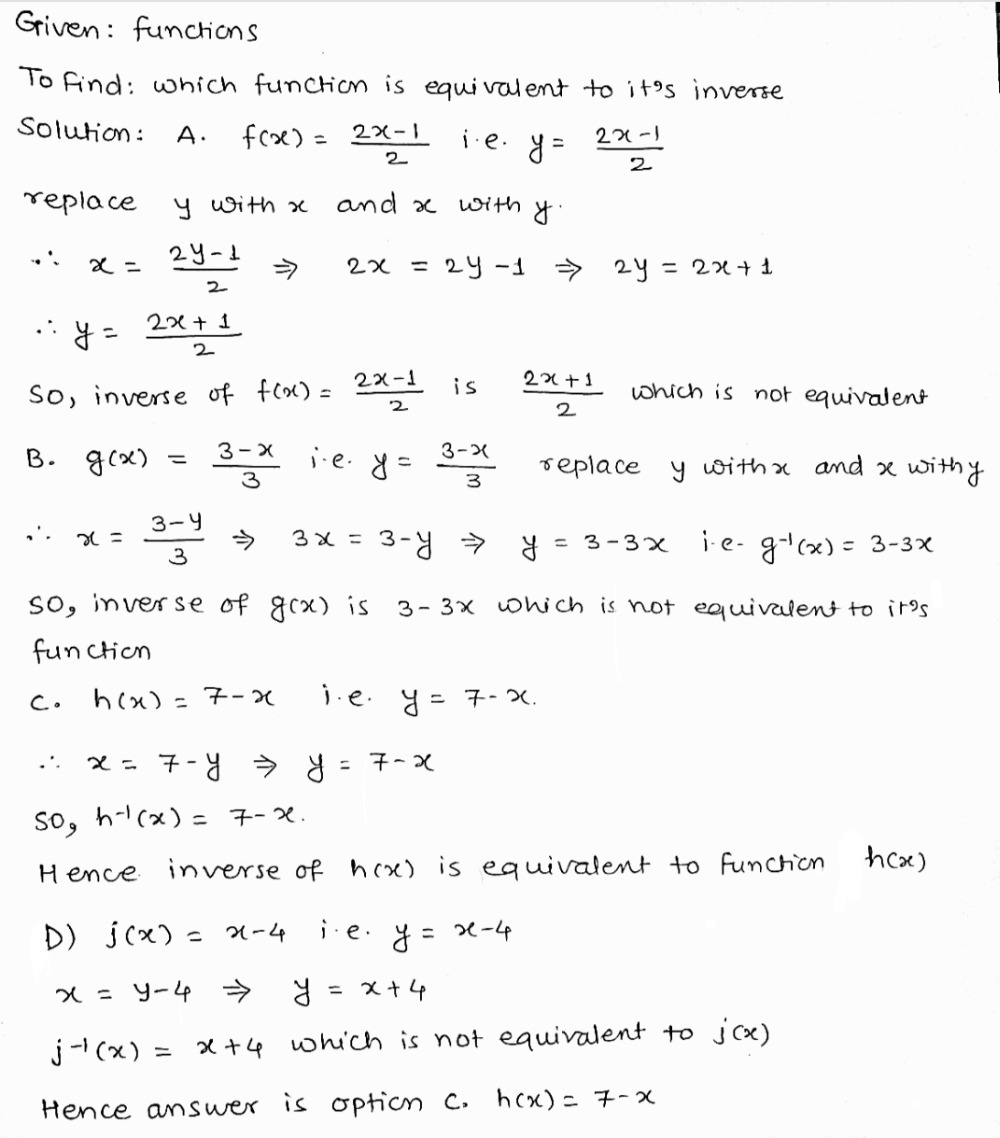 Given: functions
To find: which function is equivalent to it's inverse
Solution: A. f(x) = (2x-1)/2 i.e. y = (2x-1)/2
replace y with x and x with y.
∴ x = (2y-1)/2 ⇒ 2x = 2y-1 ⇒ 2y = 2x+1
∴ y = (2x+1)/2
So, inverse of f(x) = (2x-1)/2 is (2x+1)/2 which is not equivalent
B. g(x) = (3-x)/3 i.e. y = (3-x)/3 replace y with x and x with y
∴ x = (3-y)/3 ⇒ 3x = 3-y ⇒ y = 3-3x i.e. g⁻¹(x) = 3-3x
So, inverse of g(x) is 3-3x which is not equivalent to it's
function
C. h(x) = 7-x i.e. y = 7-x.
∴ x = 7-y ⇒ y = 7-x
So, h⁻¹(x) = 7-x.
Hence inverse of h(x) is equivalent to function h(x)
D) j(x) = x-4 i.e. y = x-4
x = y-4 ⇒ y = x+4
j⁻¹(x) = x+4 which is not equivalent to j(x)
Hence answer is option C. h(x) = 7-x